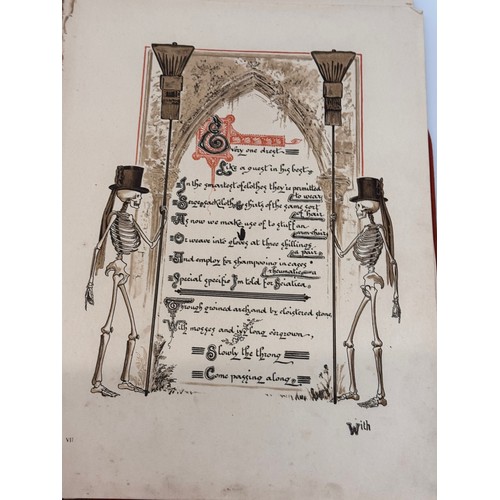 Every one drest
Like a guest in his best
In the smartest of clothes they're permitted
to wear
Serge, sackcloth & shirts of the same sort
of hair
As now we make use of to stuff an
arm-chair
Or weave into gloves at three shillings
a pair
And employ for shampooing in cases
rheumatic—a
Special specific I'm told for Sciatica.
Through groined arch and by cloistered stone
With mosses and ivy long o'ergrown,
Slowly the throng
Come passing along
With
VII